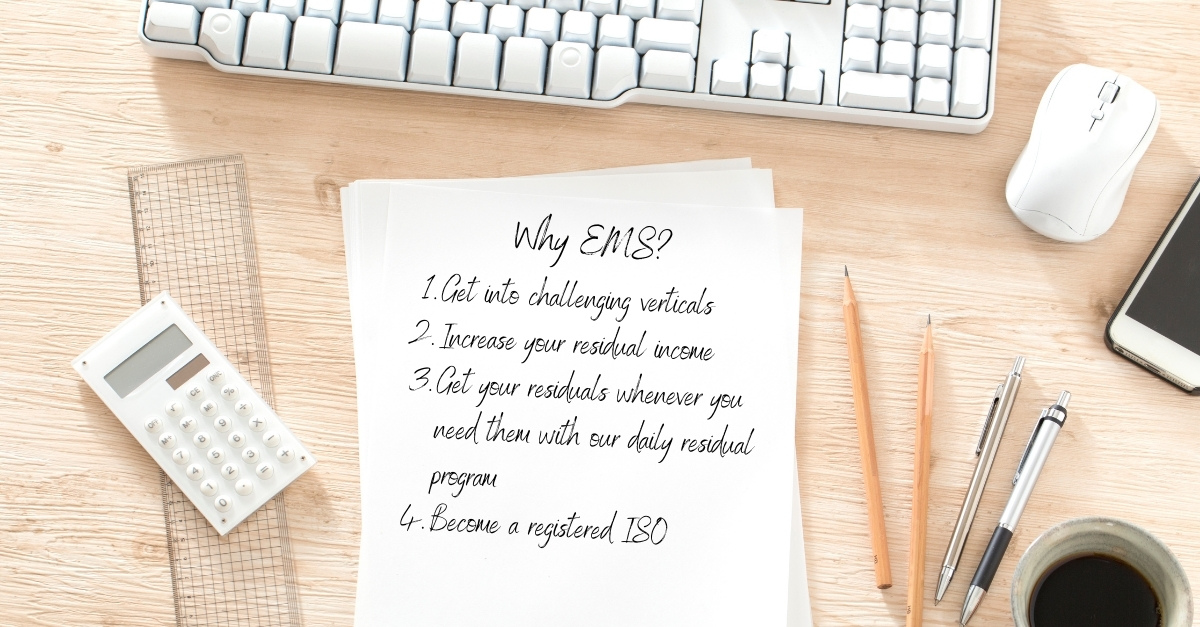 Why EMS?
1. Get into challenging verticals
2. Increase your residual income
3. Get your residuals whenever you
need them with our daily residual
program
4. Become a registered ISO